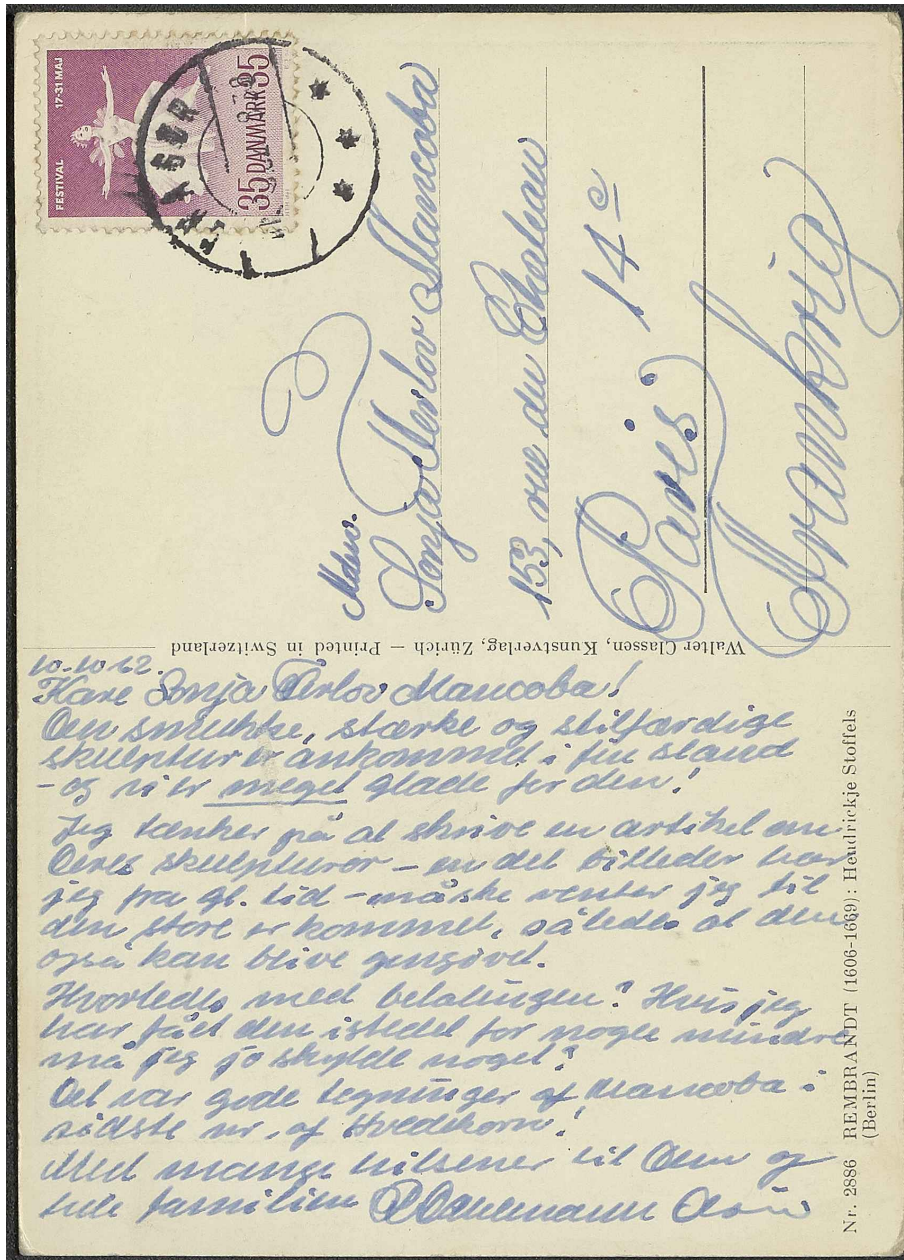 FESTIVAL 17-31 MAJ
35 DANMARK 35
Mdm.
Sonja Ferlov Mancoba
153, rue du Chateau
Paris 14e
Frankrig
Walter Classen, Kunstverlag, Zürich – Printed in Switzerland
10-10 62.
Kære Sonja Ferlov Mancoba!
Den smukke, stærke og stilfærdige
skulptur er ankommet i fin stand
- og vi er meget glade for den!
Jeg tænker på at skrive en artikel om
Deres skulpturer – en del billeder har
jeg fra gl. tid – måske venter jeg til
den store er kommet, således at den
også kan blive gengivet.
Hvorledes med betalingen? Hvis jeg
har fået den istedet for nogle mindre
må jeg jo skylde noget?
Det var gode tegninger af Mancoba i
sidste nr. af Hvedekorn!
Med mange hilsener til Dem og
hele familien
Nr. 2886 REMBRANDT (1606-1669): Hendrickje Stoffels
(Berlin)